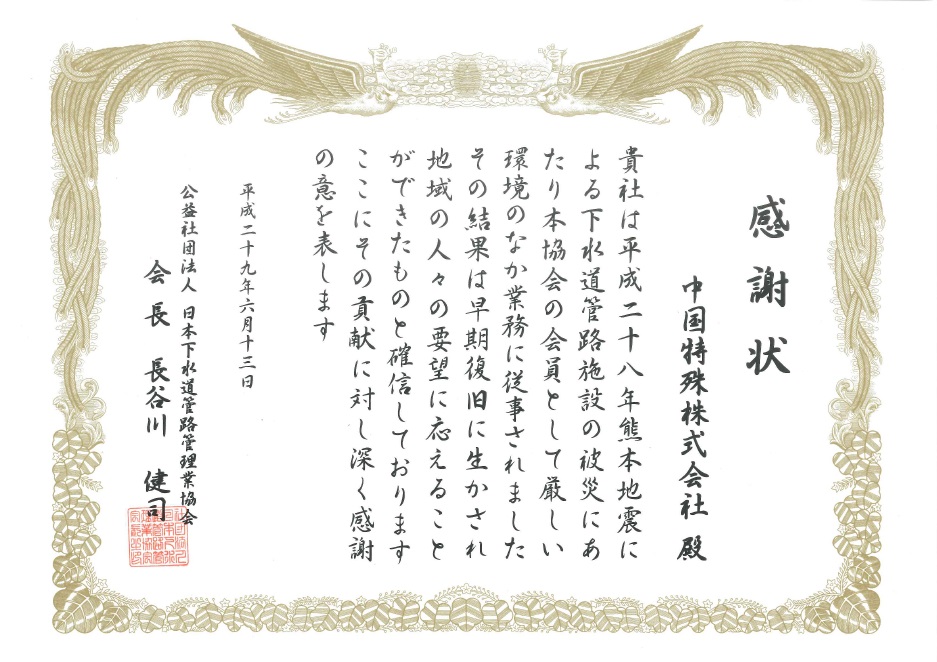 感謝状
中国特殊株式会社 殿
貴社は平成二十八年熊本地震に
よる下水道管路施設の被災にあ
たり本協会の会員として厳しい
環境のなか業務に従事されました
その結果は早期復旧に生かされ
地域の人々の要望に応えること
ができたものと確信しております
ここにその貢献に対し深く感謝
の意を表します
平成二十九年六月十三日
公益社団法人 日本下水道管路管理業協会
会長 長谷川 健司